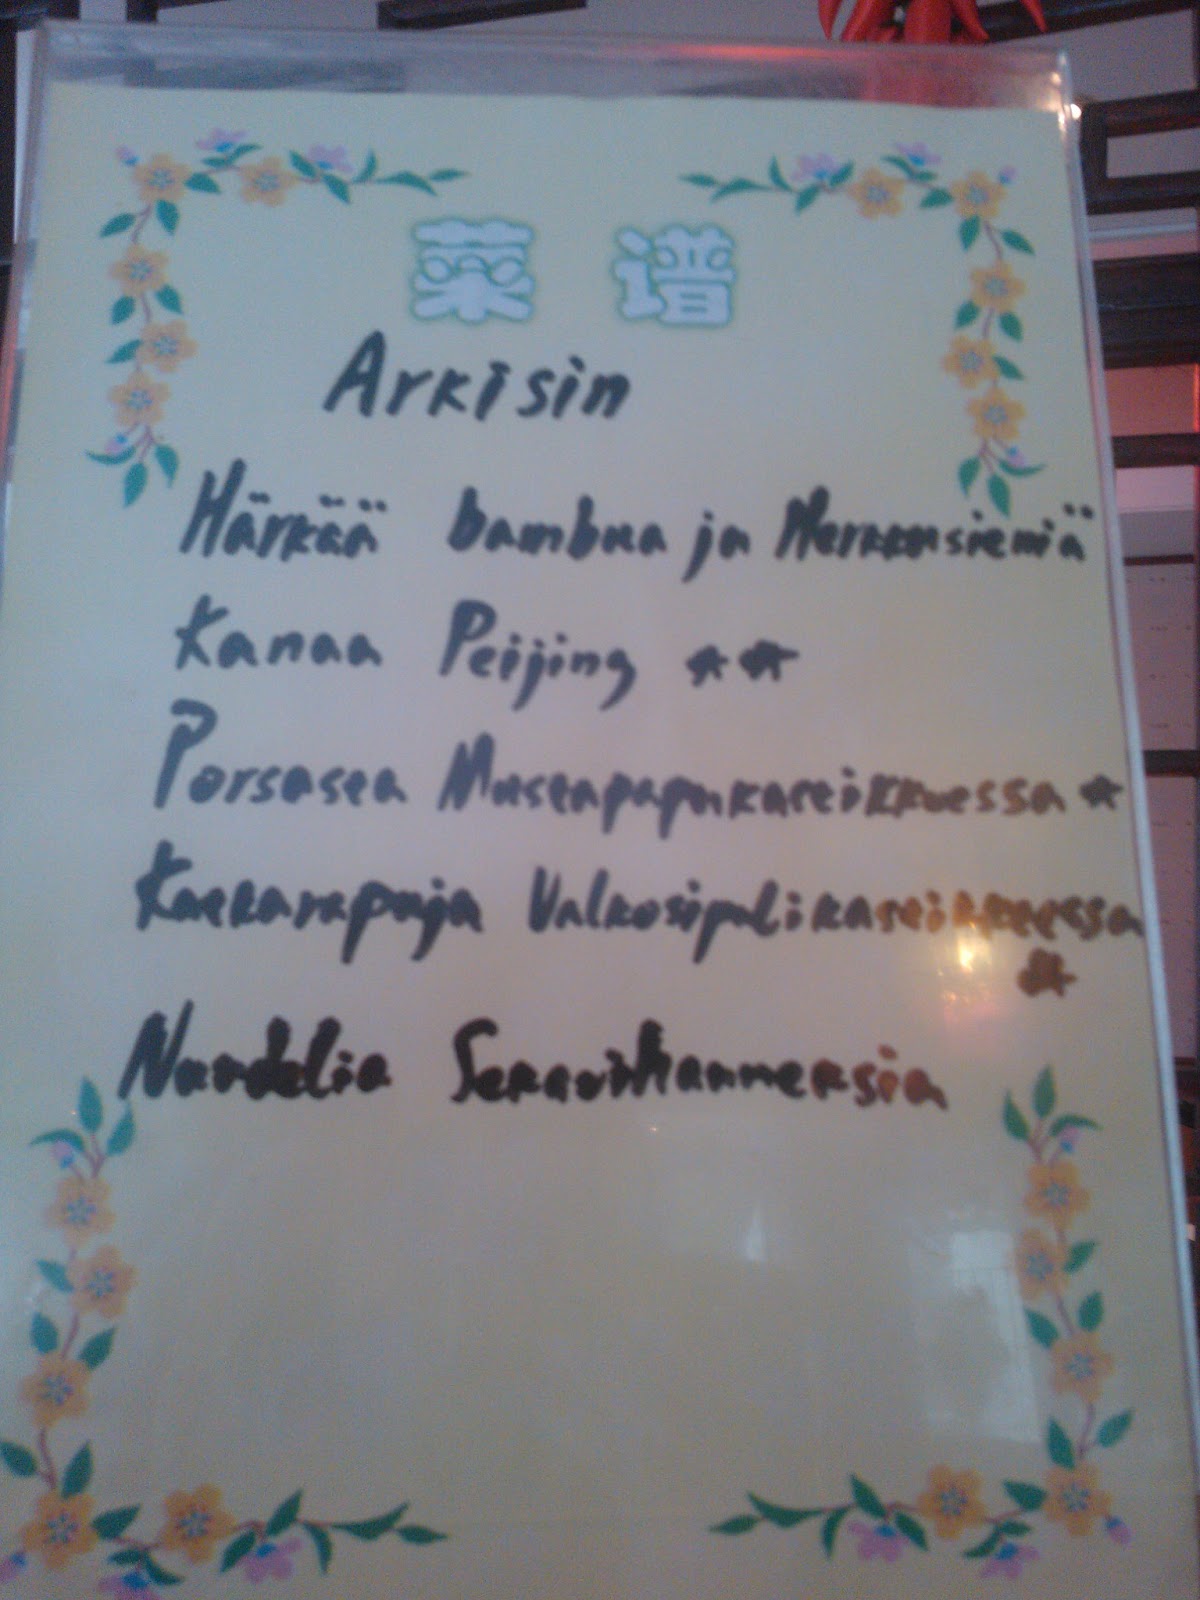 菜谱
Arkisin
Härkää bambua ja Herkkusieniä
Kanaa Peijing ☆☆
Porsasta Mustapapukastikkeessa ☆
Katkarapuja Valkosipulikastikkeessa
☆
Nuudelia